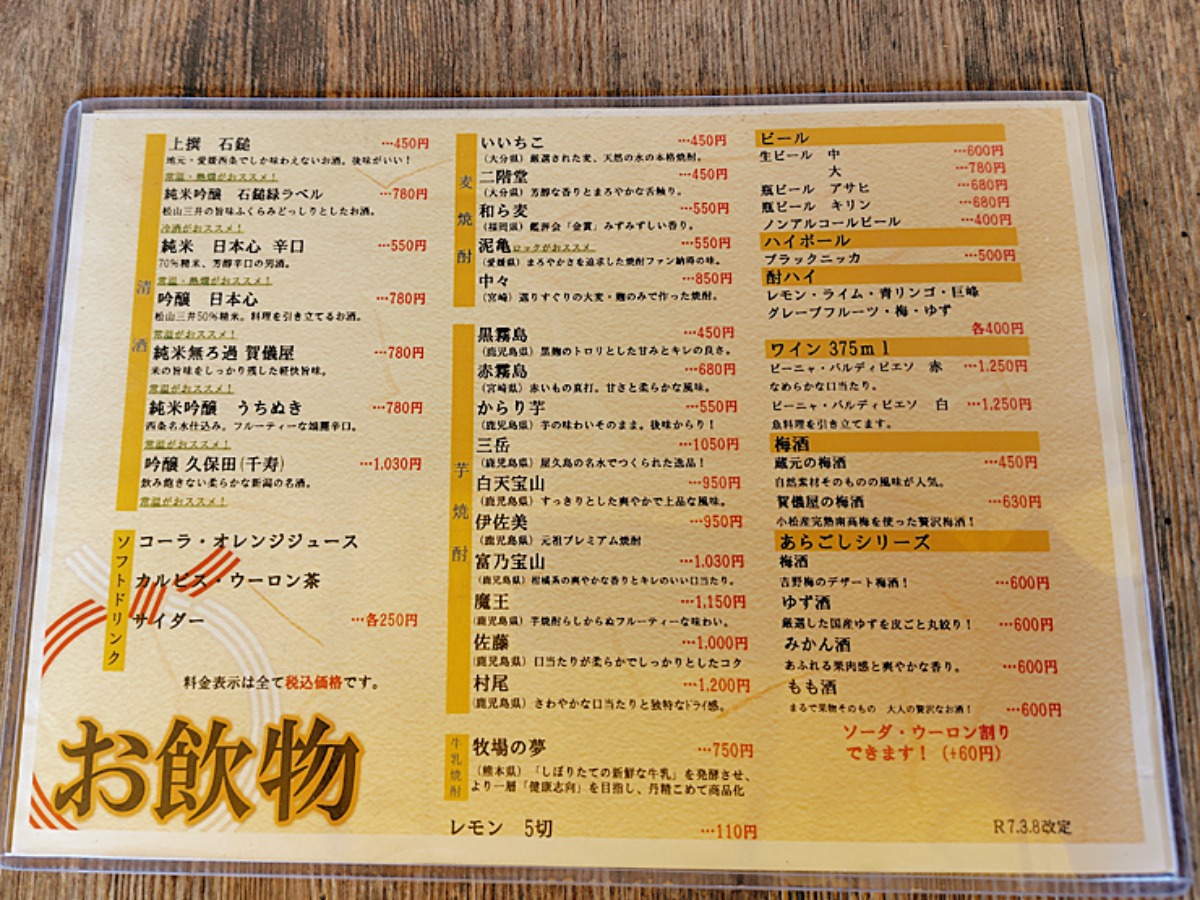 清酒
上撰 石鎚 …450円
地元・愛媛西条でしか味わえないお酒。後味がいい！
常温・熱燗がおススメ！
純米吟醸 石鎚緑ラベル …780円
松山三井の旨味ふくらみどっしりとしたお酒。
冷酒がおススメ！
純米 日本心 辛口 …550円
70%精米、芳醇辛口の男酒。
常温・熱燗がおススメ！
吟醸 日本心 …780円
松山三井50%精米。料理を引き立てるお酒。
常温がおススメ！
純米無ろ過 賀儀屋 …780円
米の旨味をしっかり残した軽快旨味。
常温がおススメ！
純米吟醸 うちぬき …780円
西条名水仕込み。フルーティーな端麗辛口。
常温がおススメ！
吟醸 久保田(千寿) …1,030円
飲み飽きない柔らかな新潟の名酒。
常温がおススメ！
ソフトドリンク
コーラ・オレンジジュース
カルピス・ウーロン茶
サイダー …各250円
料金表示は全て税込価格です。
お飲物
麦焼酎
いいちこ …450円
（大分県）厳選された麦、天然の水の本格焼酎。
二階堂 …450円
（大分県）芳醇な香りとまろやかな舌触り。
和ら麦 …550円
（福岡県）鑑評会「金賞」みずみずしい香り。
泥亀 ロックがおススメ …550円
（愛媛県）まろやかさを追求した焼酎ファン納得の味。
中々 …850円
（宮崎）選りすぐりの大麦・麹のみで作った焼酎。
芋焼酎
黒霧島 …450円
（鹿児島県）黒麹のトロリとした甘みとキレの良さ。
赤霧島 …680円
（宮崎県）赤いもの真打。甘さと柔らかな風味。
からり芋 …550円
（鹿児島県）芋の味わいそのまま。後味からり！
三岳 …1050円
（鹿児島県）屋久島の名水でつくられた逸品！
白天宝山 …950円
（鹿児島県）すっきりとした爽やかで上品な風味。
伊佐美 …950円
（鹿児島県）元祖プレミアム焼酎
富乃宝山 …1,030円
（鹿児島県）柑橘系の爽やかな香りとキレのいい口当たり。
魔王 …1,150円
（鹿児島県）芋焼酎らしからぬフルーティーな味わい。
佐藤 …1,000円
（鹿児島県）口当たりが柔らかでしっかりとしたコク
村尾 …1,200円
（鹿児島県）さわやかな口当たりと独特なドライ感。
牛乳焼酎
牧場の夢 …750円
（熊本県）「しぼりたての新鮮な牛乳」を発酵させ、
より一層「健康志向」を目指し、丹精こめて商品化
レモン 5切 …110円
ビール
生ビール 中 …600円
大 …780円
瓶ビール アサヒ …680円
瓶ビール キリン …680円
ノンアルコールビール …400円
ハイボール
ブラックニッカ …500円
酎ハイ
レモン・ライム・青リンゴ・巨峰
グレープフルーツ・梅・ゆず
各400円
ワイン 375ml
ビーニャ・バルディビエソ 赤 …1,250円
なめらかな口当たり。
ビーニャ・バルディビエソ 白 …1,250円
魚料理を引き立てます。
梅酒
蔵元の梅酒 …450円
自然素材そのものの風味が人気。
賀儀屋の梅酒 …630円
小松産完熟南高梅を使った贅沢梅酒！
あらごしシリーズ
梅酒
吉野梅のデザート梅酒！ …600円
ゆず酒
厳選した国産ゆずを皮ごと丸絞り！ …600円
みかん酒
あふれる果肉感と爽やかな香り。 …600円
もも酒
まるで果物そのもの 大人の贅沢なお酒！ …600円
ソーダ・ウーロン割り
できます！（+60円）
R7.3.8改定